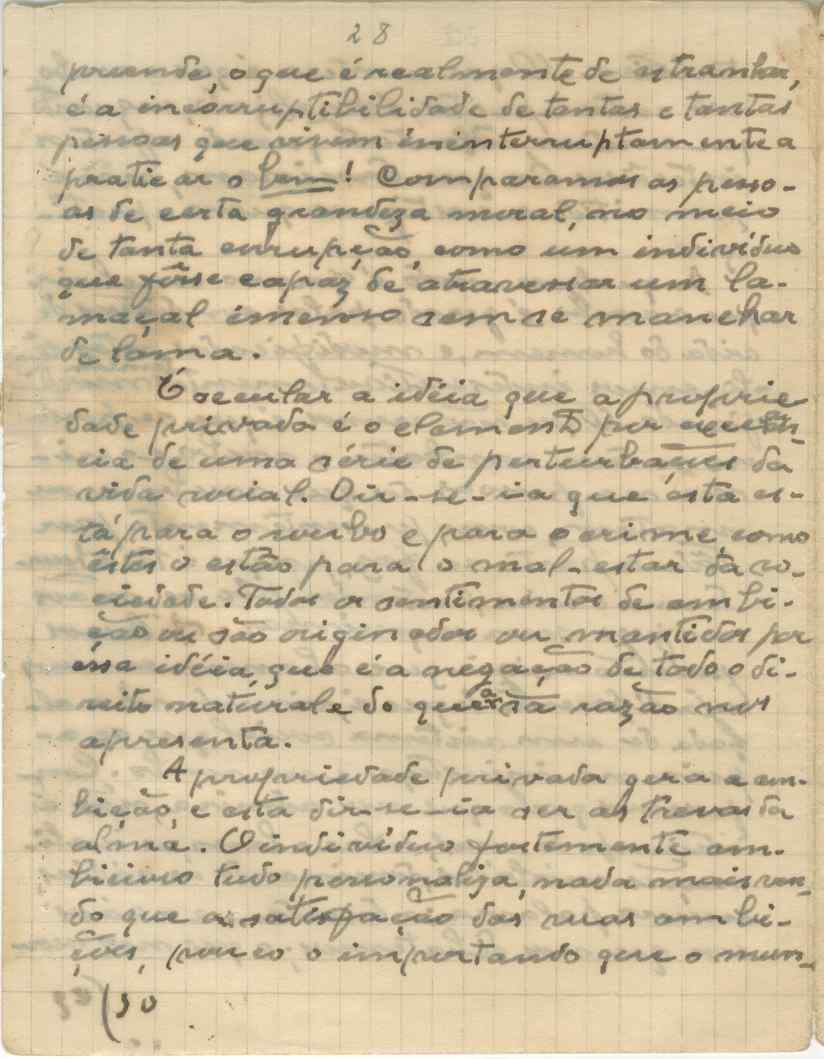 28
preende, o que é realmente de estranhar,
é a incorruptibilidade de tantas e tantas
pessoas que visam ininterruptamente a
praticar o bem! Comparamos as pesso-
as de certa grandeza moral, no meio
de tanta corrupção, como um indivíduo
que fôsse capaz de atravessar um la-
maçal imenso sem se manchar
de lama.
É secular a idéia que a proprie
dade privada é o elemento por excelên-
cia de uma série de perturbações da
vida social. Dir-se-ia que esta es-
tá para o roubo e para o crime como
êstes o estão para o mal-estar da so-
ciedade. Todos os sentimentos de ambi-
ção ou são originados ou mantidos por
essa idéia, que é a negação de todo o di-
reito natural e do que a sã razão nos
apresenta.
A propriedade privada gera a am-
bição, e esta dir-se-ia ser as trevas da
alma. O indivíduo fortemente am-
bicioso tudo personaliza, nada mais ven-
do que a satisfação das suas ambi-
ções, pouco o importando que o mun-
(30